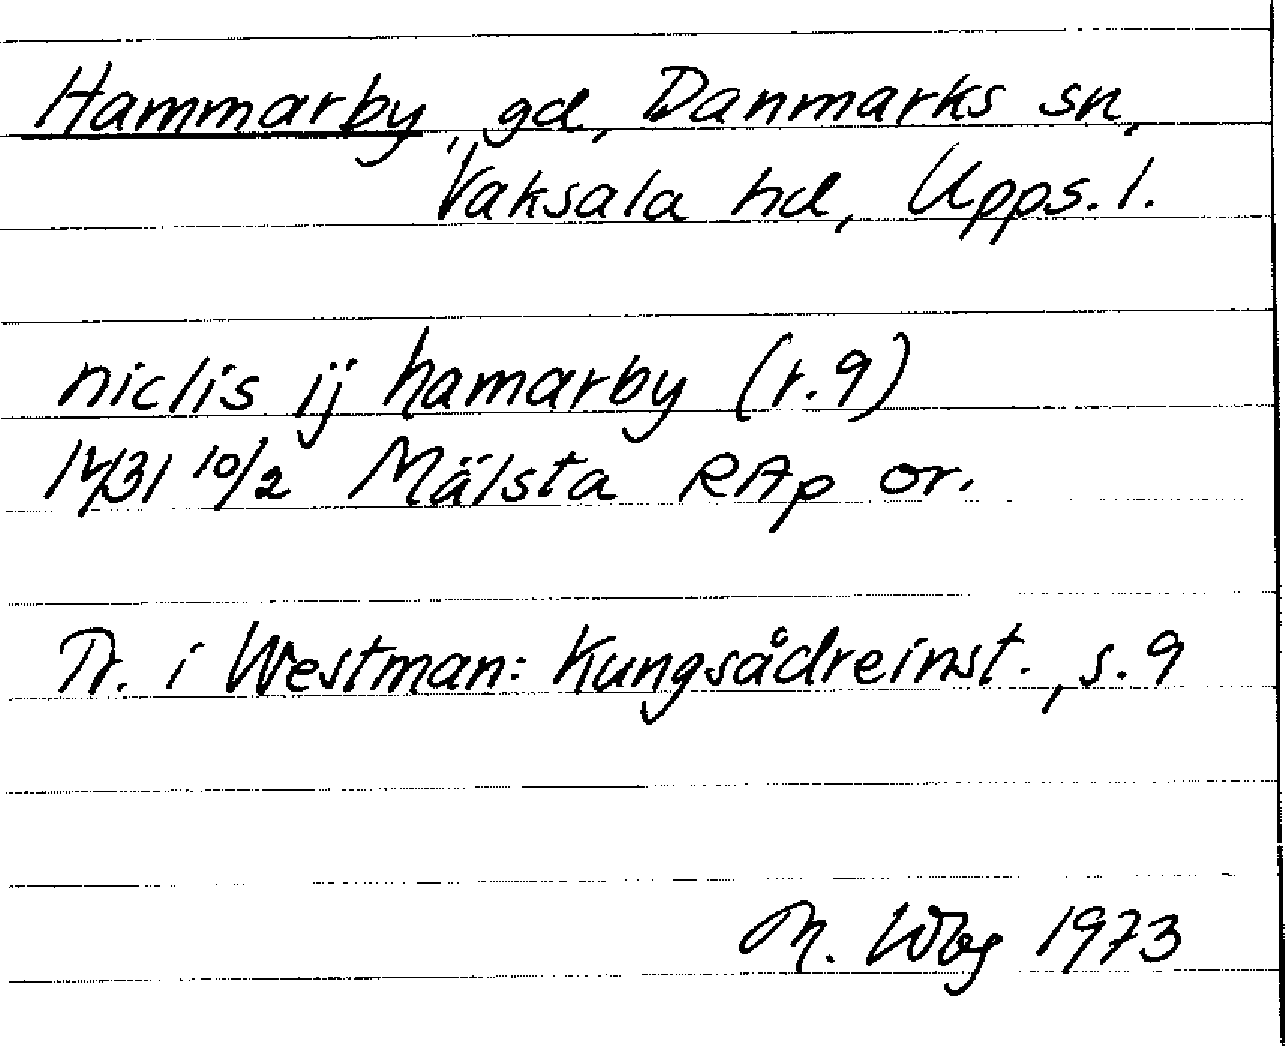 Hammarby, gd, Danmarks sn,
Vaksala hd, Upps. l.
niclis ij hamarby (r. 9)
1431 10/2 Mälsta RAp or.
Tr. i Westman: Kungsådreinst., s. 9
M. Wbg 1973